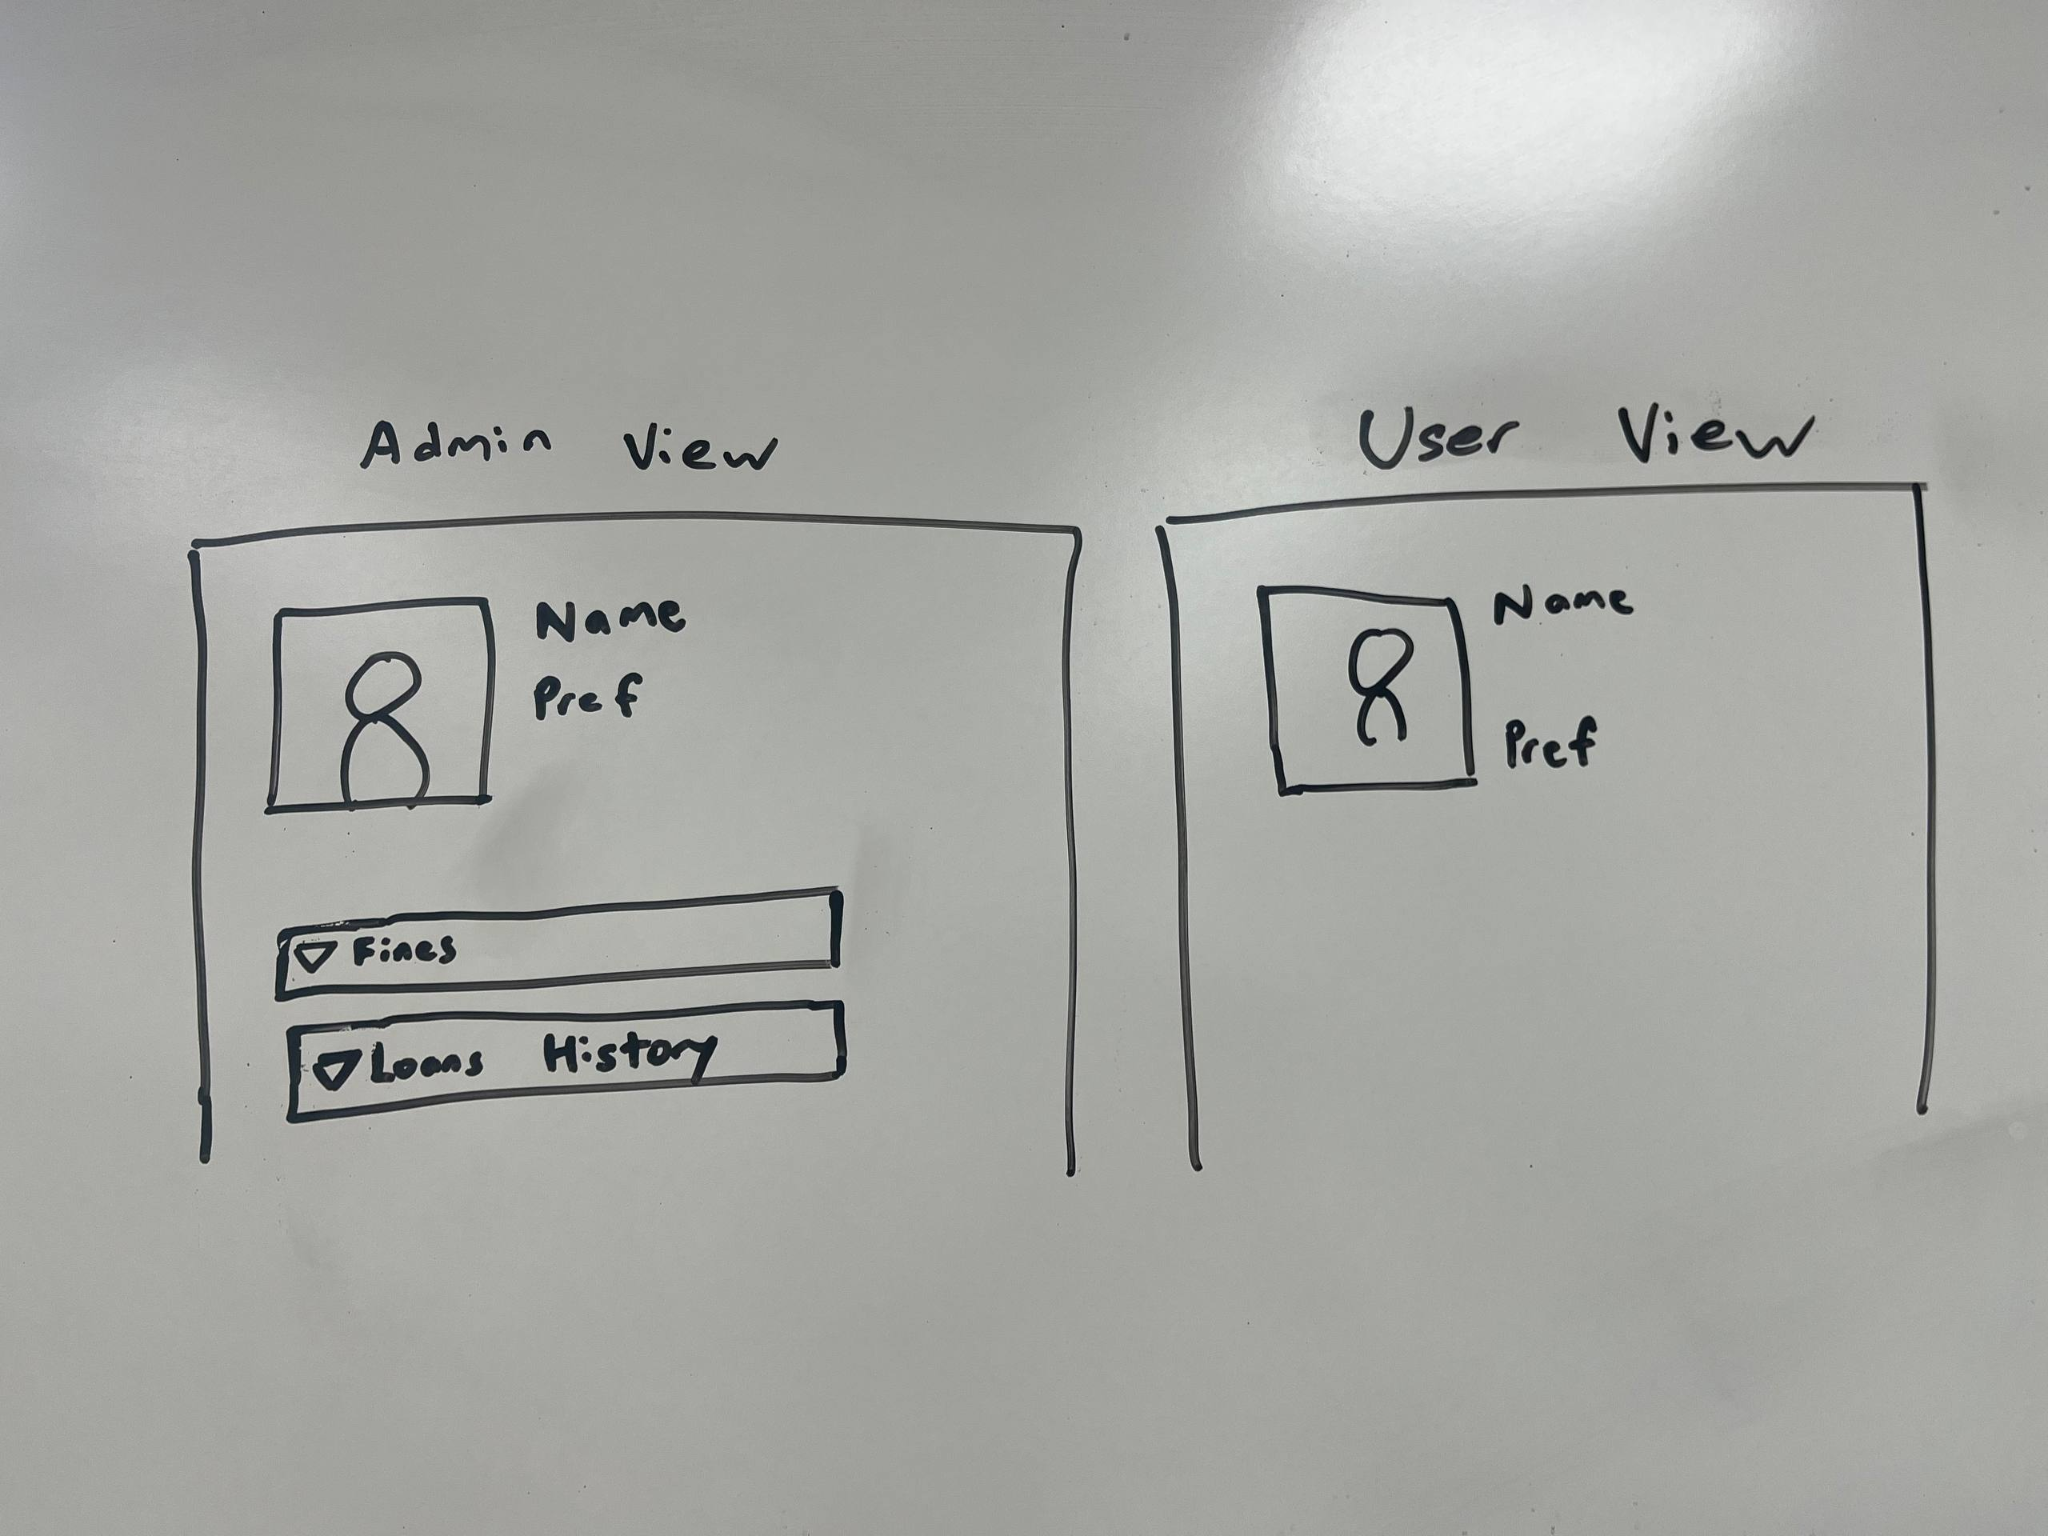 Admin View
Name
Pref
Fines
Loans History
User View
Name
Pref